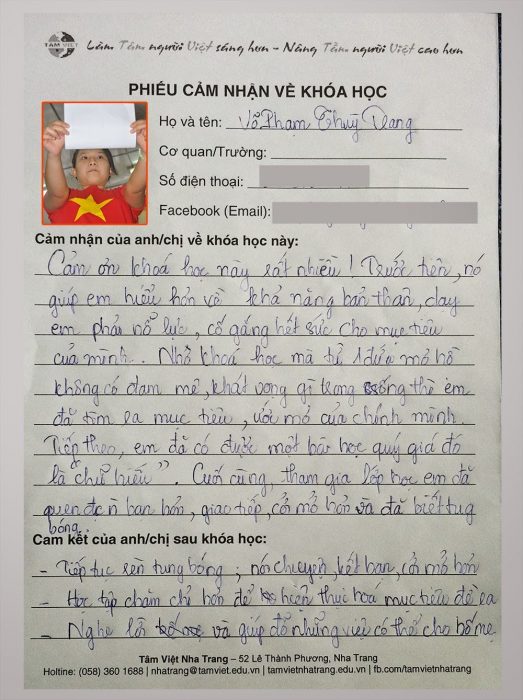 TÂM VIỆT
Làm Tâm người Việt sáng hơn - Nâng Tầm người Việt cao hơn
PHIẾU CẢM NHẬN VỀ KHÓA HỌC
Họ và tên: Võ Phạm Thuỳ Trang
Cơ quan/Trường:
Số điện thoại:
Facebook (Email):
Cảm nhận của anh/chị về khóa học này:
Cảm ơn khoá học này rất nhiều! Trước tiên, nó
giúp em hiểu hơn về khả năng bản thân, dạy
em phải nổ lực, cố gắng hết sức cho mục tiêu
của mình. Nhờ khoá học mà từ 1 đứa mơ hồ
không có đam mê, khát vọng gì trong sống thì em
đã tìm ra mục tiêu, ước mơ của chính mình.
Tiếp theo, em đã có được một bài học quý giá đó
là "chữ hiếu". Cuối cùng, tham gia lớp học em đã
quen đc n bạn hơn, giao tiếp, cởi mở hơn và đã biết tug
bóng.
Cam kết của anh/chị sau khóa học:
- Tiếp tục rèn tung bóng; nói chuyện, kết bạn, cởi mở hơn
- Học tập chăm chỉ hơn để hiện thực hoá mục tiêu đề ra
- Nghe lời và giúp đỡ những việc có thể cho bố mẹ
Tâm Việt Nha Trang – 52 Lê Thành Phương, Nha Trang
Holtine: (058) 360 1688 | nhatrang@tamviet.edu.vn | tamvietnhatrang.edu.vn | fb.com/tamvietnhatrang